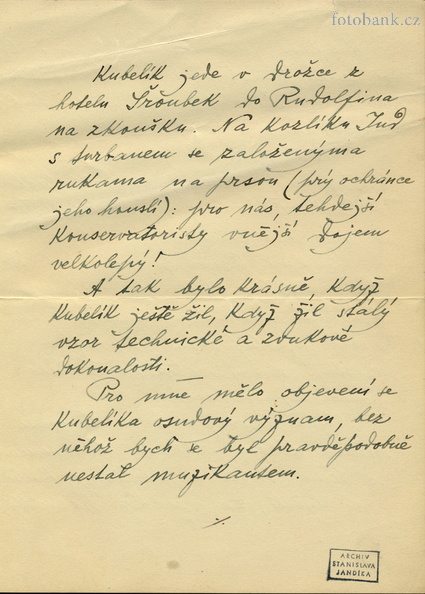 fotobank.cz
Kubelík jede v drožce z
hotelu Šroubek do Rudolfina
na zkoušku. Na kozlíku Ind
s turbanem se založenýma
rukama na prsou (prý ochránce
jeho houslí): pro nás, tehdejší
Konservatoristy vnější dojem
velkolepý!
A tak bylo krásně, když
Kubelík ještě žil, když žil stálý
vzor technické a zvukové
dokonalosti.
Pro mne mělo objevení se
Kubelíka osudový význam, bez
něhož bych se byl pravděpodobně
nestal muzikantem.
./.
ARCHIV
STANISLAVA
JANDÍKA